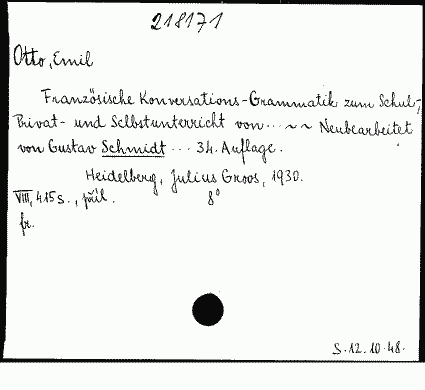 218171
Otto, Emil
Französische Konversations-Grammatik zum Schul-,
Privat- und Selbstunterricht von ... ~ ~ Neubearbeitet
von Gustav Schmidt ... 34. Auflage.
Heidelberg, Julius Groos, 1930.
VIII, 415 S., 8°
fr.
S. 12. 10. 48.